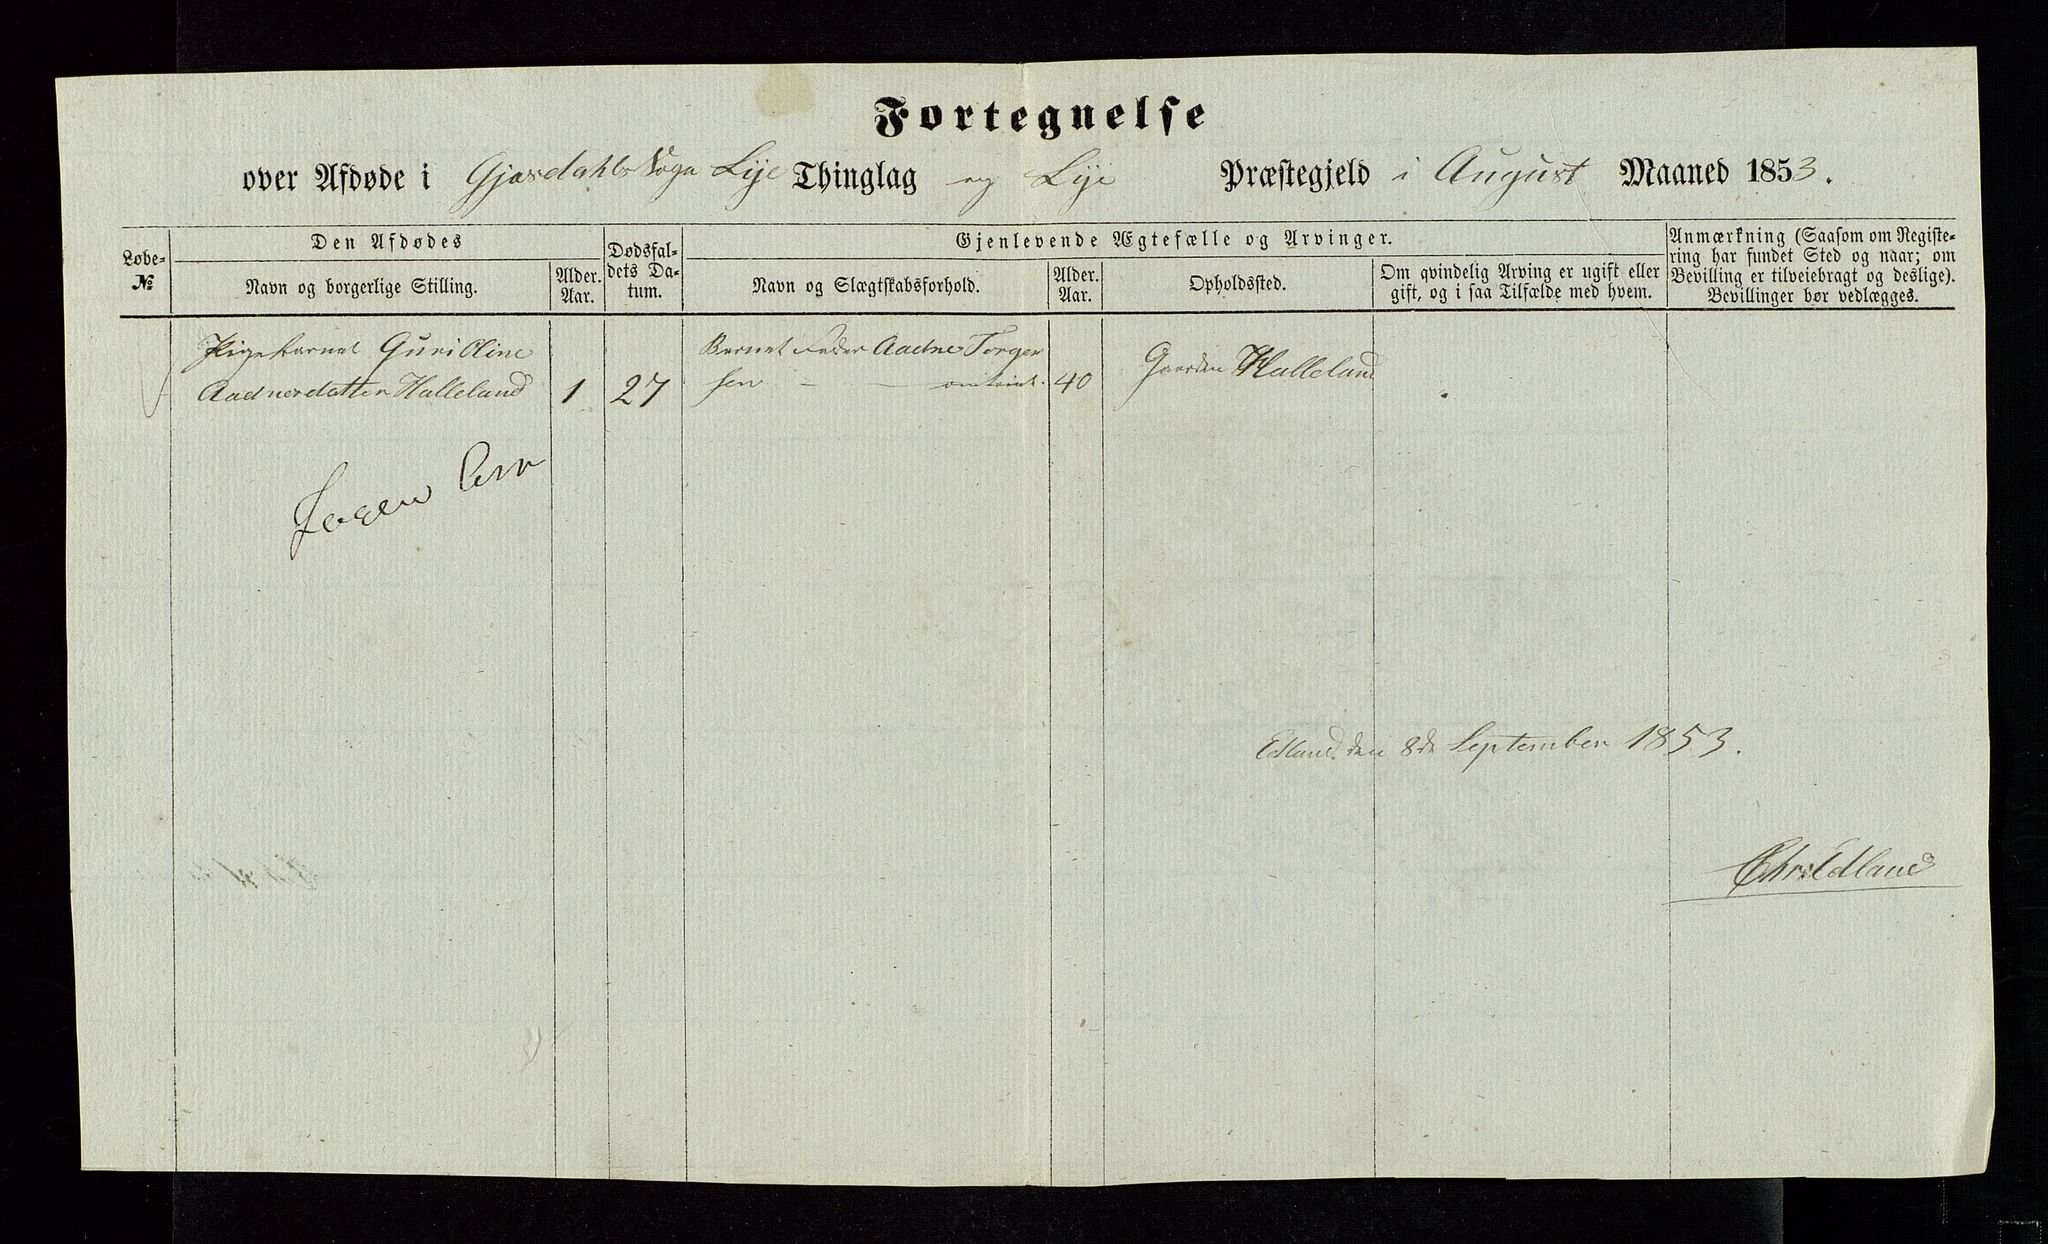 Fortegnelse
over Afdøde i Gjæsdahls Sogn Lye Thinglag og Lye Præstegjeld i August Maaned 1853.
Løbe-
№
Den Afdødes
Navn og borgerlige Stilling.
Alder.
Aar.
Dødsfal-
dets Da-
tum.
Gjenlevende Ægtefælle og Arvinger.
Navn og Slægtskabsforhold.
Alder.
Aar.
Opholdssted.
Om qvindelig Arving er ugift eller
gift, og i saa Tilfælde med hvem.
Anmærkning (Saasom om Registe-
ring har fundet Sted og naar; om
Bevilling er tilveiebragt og deslige).
Bevillinger bør vedlægges.
Pigebarnet Guri Oline
Aadnesdatter Halleland 1 27
Barnets Fader Aadne Torger
sen - - omtrent 40
Gaarden Halleland
Ingen Arv
Edland den 8de September 1853.
Chr: Edland